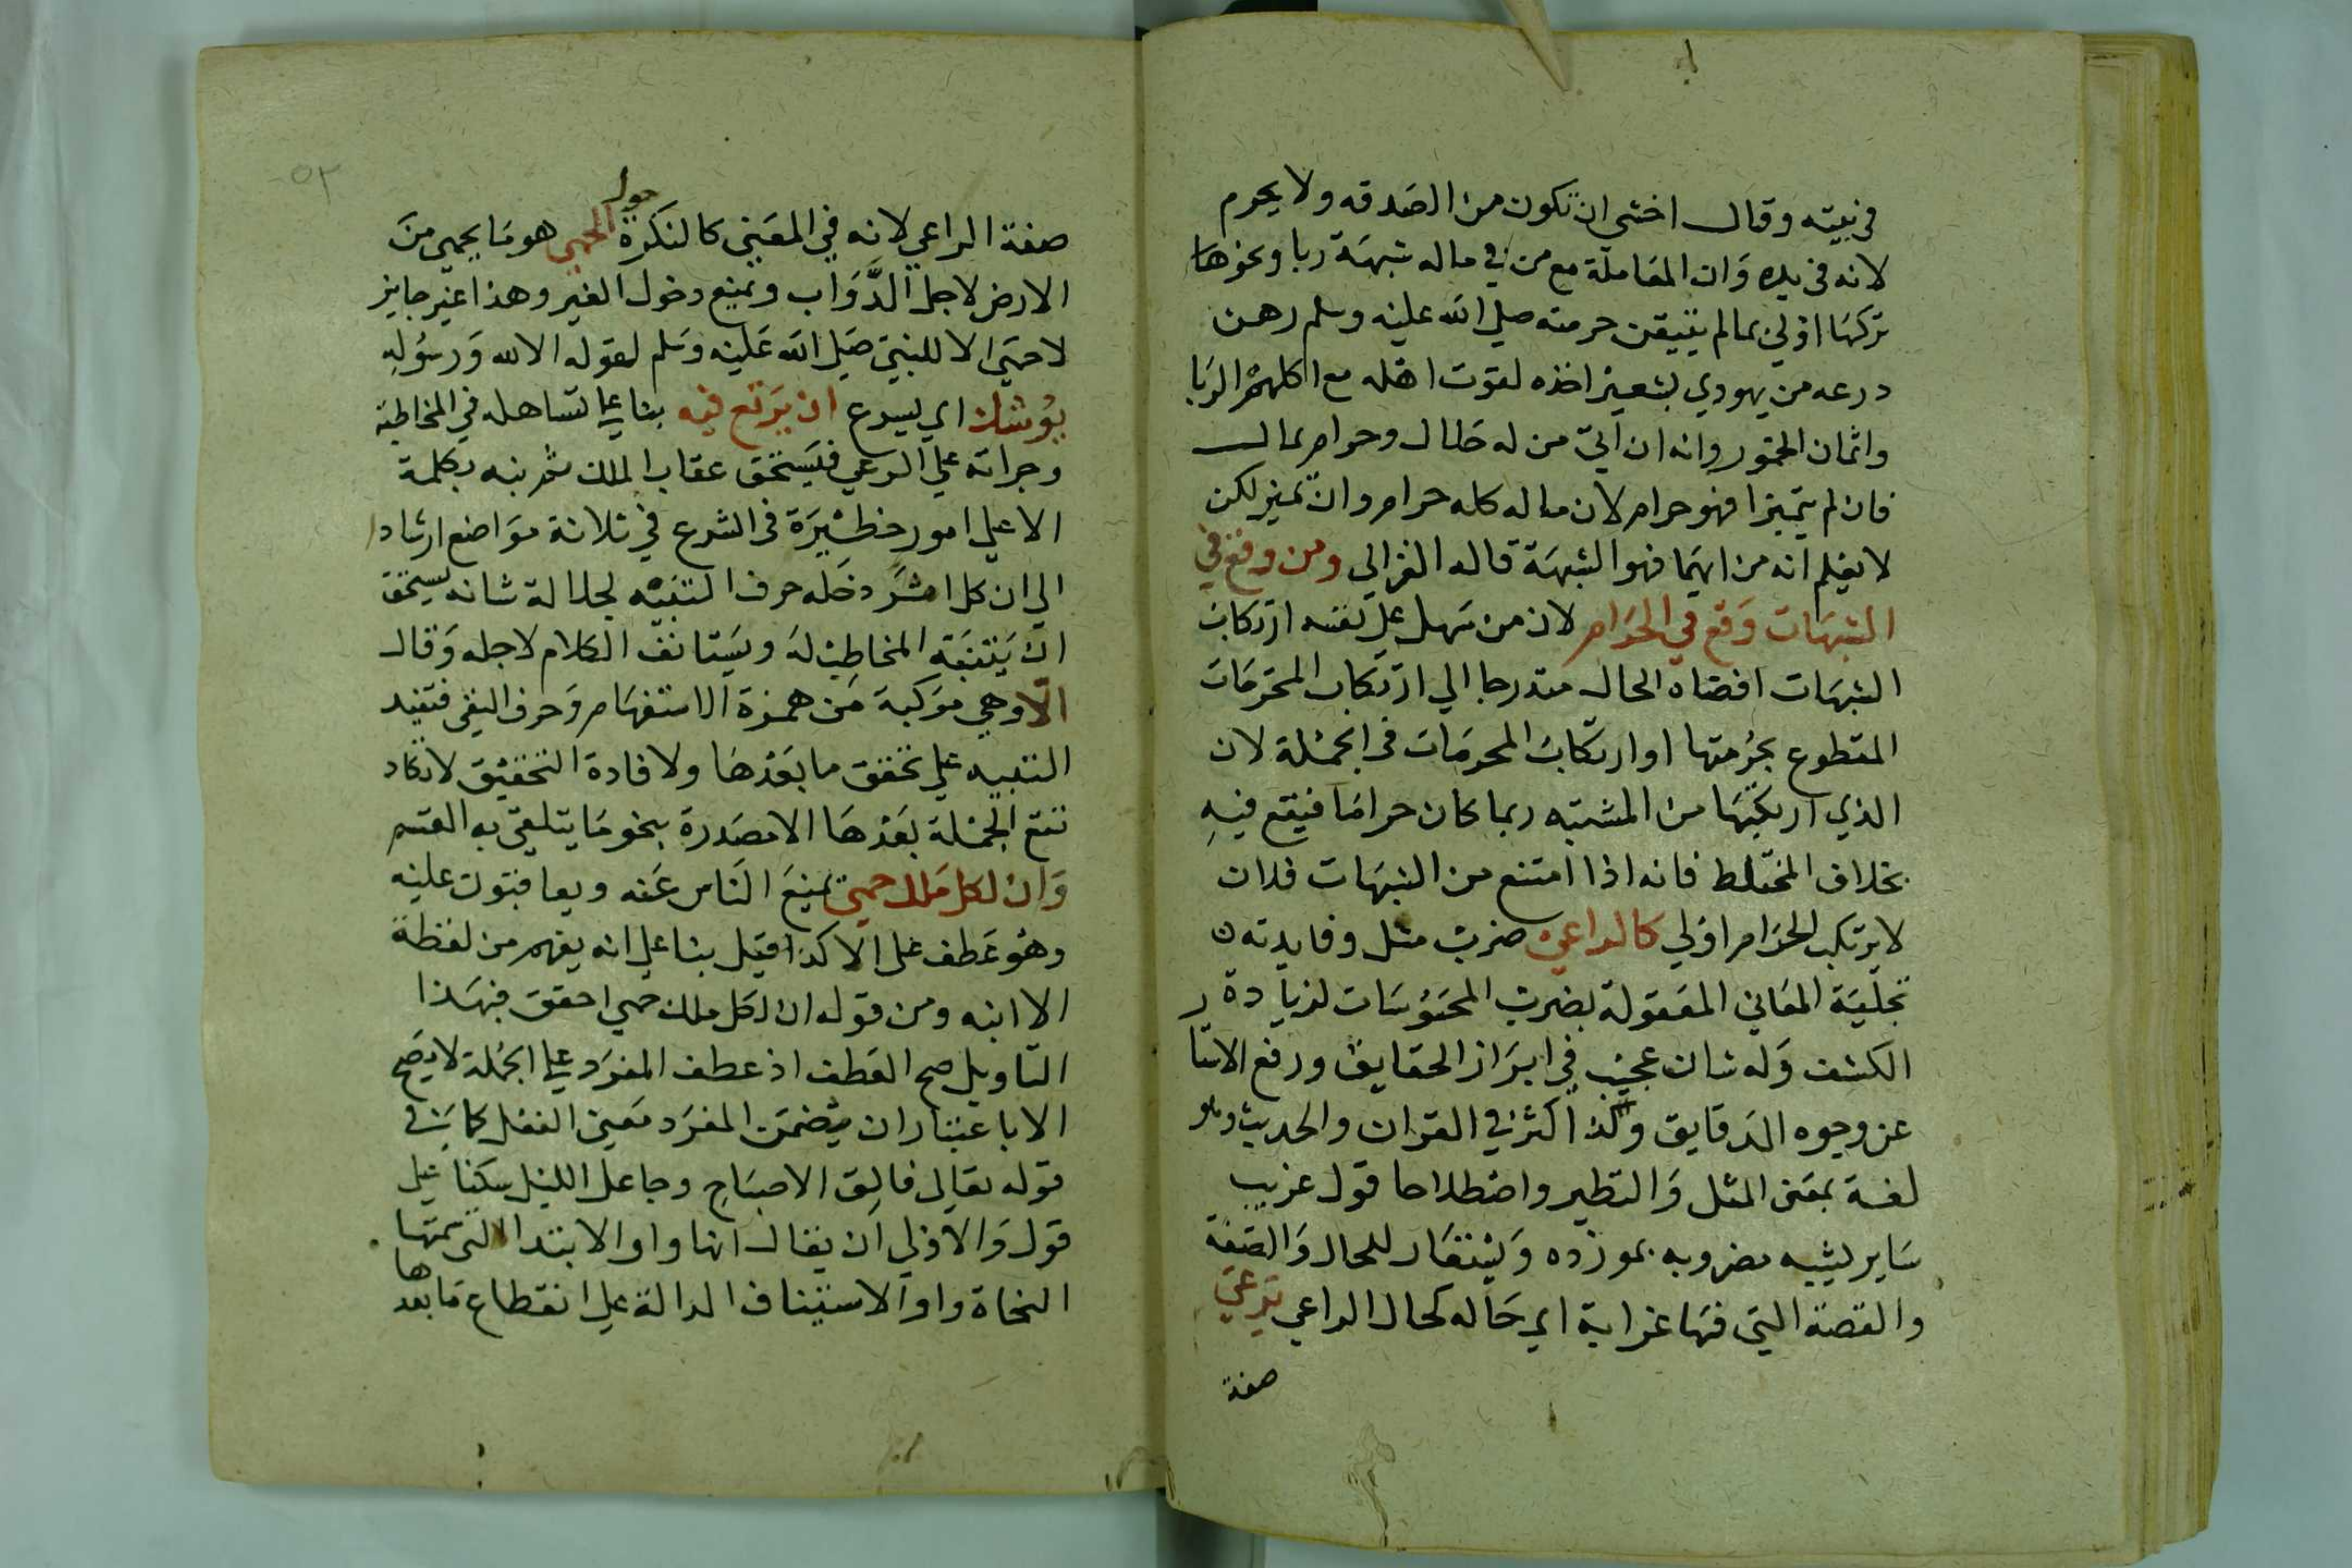 في بيته وقال اخشى ان تكون من الصدقه ولا يحرم
لانه في يده وان المعاملة مع من في ماله شبهة ربا ونحوها
تركها اولي بما لم يتيقن حرمته صلي الله عليه وسلم رهن
درعه من يهودي بشعير اخذه لقوت اهله مع اكلهم الربا
واثمان الخمور وانه ان اتي من له حلال وحرام بمال
فان لم يتميزا فهو حرام لان ماله كله حرام وان تميز لكن
لا يعلم انه من ايهما فهو الشبهة قاله الغزالي ومن وقع في
الشبهات وقع في الحرام لان من سهل علي نفسه ارتكاب
الشبهات افضاه الحال متدرجا الي ارتكاب المحرمات
المقطوع بحرمتها او ارتكاب المحرمات في الجملة لان
الذي ارتكبها من المشتبه ربما كان حراما فيقع فيه
بخلاف المختلط فانه اذا امتنع من الشبهات فلان
لا يرتكب الحرام اولي كالراعي ضرب مثل وفايدته
تجلية المعاني المعقولة بضرب المحسوسات لزيادة
الكشف وله شان عجيب في ابراز الحقايق ورفع الاستار
عن وجوه الدقايق ولذا كثر في القران والحديث وهو
لغة بمعني المثل والنظير واصطلاحا قول غريب
ساير يشبه مضروبه بمورده ويستعار للحال والصفة
والقصة التي فيها غرابة اي حاله كحال الراعي يرعي
صفة
٥٢
صفة الراعي لانه في المعني كالنكرة حول الحمي هو ما يحمي من
الارض لاجل الدواب ويمنع دخول الغير وهذا غير جايز
لاحمي الا للنبي صلي الله عليه وسلم لقوله الا لله ورسوله
يوشك اي يسرع ان يرتع فيه بنا علي تساهله في المخاطبة
وجراته علي الرعي فيستحق عقاب الملك ثم نبه بكلمة
الا علي امور خطيرة في الشرع في ثلاثة مواضع ارشادا
الي ان كل امر دخله حرف التنبيه لجلالة شانه يستحق
ان يتنبه المخاطب له ويستانف الكلام لاجله وقال
الا وهي مركبة من همزة الاستفهام وحرف النفي فتفيد
التنبيه علي تحقق ما بعدها ولافادة التحقيق لا تكاد
تقع الجملة بعدها الا مصدرة بنحو ما يتلقي به القسم
وان لكل ملك حمي يمنع الناس عنه ويعاقبون عليه
وهو عطف علي الا كذا قيل بنا علي انه يفهم من لفظة
الا انبه ومن قوله ان لكل ملك حمي احقق فبهذا
التاويل صح العطف اذ عطف المفرد علي الجملة لا يصح
الا باعتبار ان يتضمن المفرد معني الفعل كما في
قوله تعالي فالق الاصباح وجاعل الليل سكنا علي
قول والاولي ان يقال انها واو الابتدا التي سمتها
النحاة واو الاستيناف الدالة علي انقطاع ما بعدها